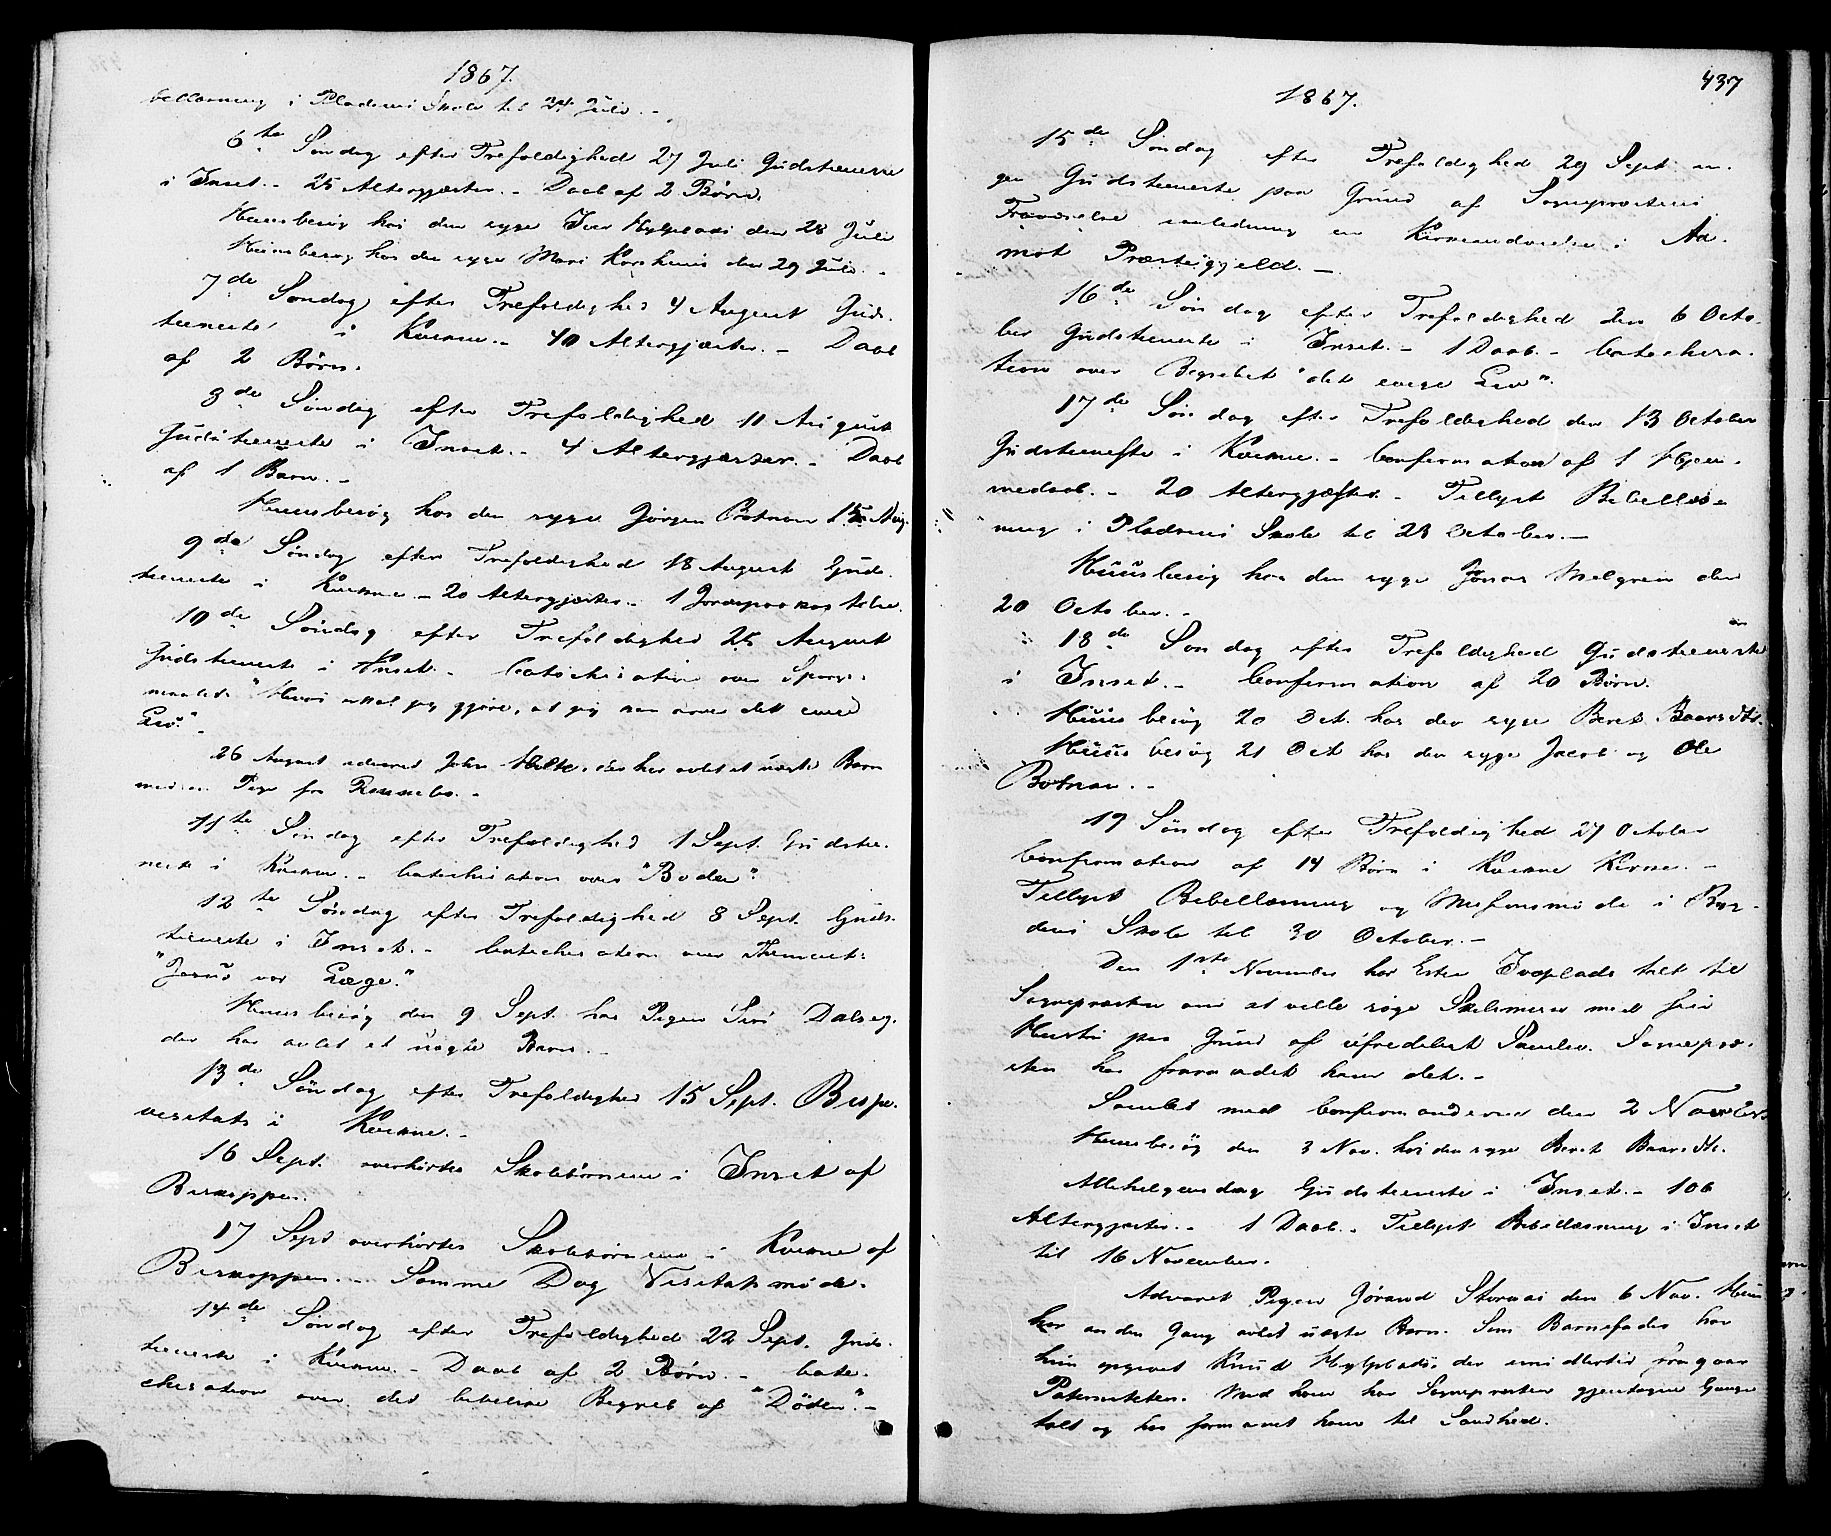 1867.
bellæsning i Pladsens Skole til 24 Juli. -
6te Søndag efter Trefoldighed 27 Juli Gudstieneste
i Inset. - 25 Altergjæster. - Daab af 2 Børn.
Huusbesøg hos den syge Iver Nyplads den 28 Juli
Huusbesøg hos den syge Mari den 29 Juli. -
7de Søndag efter Trefoldighed 4 August Guds-
tieneste i Kvikne. - 40 Altergjæster. - Daab
af 2 Børn.
8de Søndag efter Trefoldighed 11 August
Gudstieneste i Inset. - 4 Altergjæster. - Daab
af 1 Barn. -
Huusbesøg hos den syge Jørgen Botnan 15 Aug.
9de Søndag efter Trefoldighed 18 August Guds-
tieneste i Kvikne - 20 Altergjæster. - 1 Jordpaakastelse.
10de Søndag efter Trefoldighed 25 August
Gudstieneste i Inset. - Catechisation over Spørgs-
maalet: "Hvad skal jeg gjøre, at jeg kan arve det evige
Liv". -
26 August advaret John der har avlet et uægte Barn
med en Pige fra Rennebo. -
11te Søndag efter Trefoldighed 1 Sept. Gudstie-
neste i Kvikne. - Catechisation over "Boden".
12te Søndag efter Trefoldighed 8 Sept. Guds-
tieneste i Inset. - Catechisation over Themaet:
"Jesus vor Læge."
Huusbesøg den 9 Sept. hos Pigen Siri Dalseg.
der har avlet et uægte Barn. -
13de Søndag efter Trefoldighed 15 Sept. Bispe-
visitats i Kvikne. -
16 Sept. overhørtes Skolebørnene i Inset af
Biskoppen.
17 Sept overhørtes Skolebørnene i Kvikne af
Biskoppen. - Samme Dag Visitatsmøde.
14de Søndag efter Trefoldighed 22 Sept. Guds-
tieneste i Kvikne. - Daab af 2 Børn. - Cate-
chisation over det bibelske Begreb af "Døden". -
437
1867.
15de Søndag efter Trefoldighed 29 Sept. in-
gen Gudstieneste paa Grund af Sognepræstens
Fraværelse i anledning en Kirkeindvielse i Aa-
mot Præstegjeld. -
16de Søndag efter Trefoldighed den 6 Octo-
ber Gudstieneste i Inset. - 1 Daab. - Catechisa-
tion over Begrebet "det evige Liv".
17de Søndag efter Trefoldighed den 13 October
Gudstieneste i Kvikne. - Confirmation af 1 Hjem-
medaab. - 20 Altergjæster. - Tillyst Bibellæs-
ning i Pladsens Skole til 23 October. -
Huusbesøg hos den syge Jonas Melgren den
20 October. -
18de Søndag efter Trefoldighed Gudstieneste
i Inset. - Confirmation af 20 Børn.
Huusbesøg 20 Oct. hos den syge Beret Baardst.
Huusbesøg 21 Oct hos den syge Jacob og Ole
Botnan. -
19 Søndag efter Trefoldighed 27 October
Confirmation af 14 Børn i Kvikne Kirke. -
Tillyst Bibellæsning og Missionsmøde i Byg-
dens Skole til 30 October. -
Den 1ste November har Esten talt til
Sognepræsten om at ville søge Skilsmisse med sin
Hustru paa Grund af ufredeligt Samliv. Sognepræ-
sten har fraraadet ham det. -
Samlet med Confirmanderne den 2 Novbr.
Huusbesøg den 3 Nov. hos den syge Beret Baardst.
Allehelgensdag Gudstieneste i Inset. - 106
Altergjæster. - 1 Daab. - Tillyst Bibellæsning i Inset
til 16 November.
Advaret Pigen Jørand Stornæs den 6 Nov. Hun
har anden Gang avlet uægte Barn. Som Barnefader har
hun opgivet Knud Nyplads, der imidlertid fragaar
Paterniteten. Med ham har Sognepræsten gjentagne Gange
talt og har formanet ham til Sandhed.